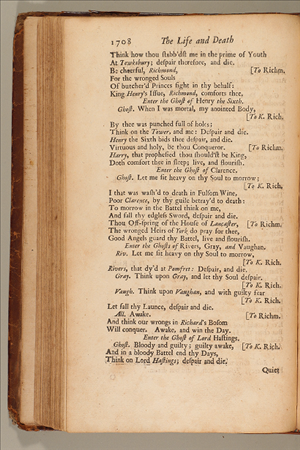 1708 The Life and Death
Think how thou stabb'dst me in the prime of Youth
At Tewksbury; despair therefore, and die.
Be chearful, Richmond, [To Richm.
For the wronged Souls
Of butcher'd Princes fight in thy behalf:
King Henry's Issue, Richmond, comforts thee.
Enter the Ghost of Henry the Sixth.
Ghost. When I was mortal, my anointed Body,
[To K. Rich.
By thee was punched full of holes;
Think on the Tower, and me: Despair and die.
Henry the Sixth bids thee despair, and die.
Virtuous and holy, be thou Conqueror. [To Richm.
Harry, that prophesied thou should'st be King,
Doth comfort thee in sleep; live, and flourish.
Enter the Ghost of Clarence.
Ghost. Let me sit heavy on thy Soul to morrow;
[To K. Rich.
I that was wash'd to death in Fulsom Wine,
Poor Clarence, by thy guile betray'd to death:
To morrow in the Battel think on me,
And fall thy edgless Sword, despair and die.
Thou Off-spring of the House of Lancaster, [To Richm.
The wronged Heirs of York do pray for thee,
Good Angels guard thy Battel, live and flourish.
Enter the Ghosts of Rivers, Gray, and Vaughan.
Riv. Let me sit heavy on thy Soul to morrow,
[To K. Rich.
Rivers, that dy'd at Pomfret: Despair, and die.
Gray. Think upon Gray, and let thy Soul despair.
[To K. Rich.
Vaugh. Think upon Vaughan, and with guilty fear
[To K. Rich.
Let fall thy Launce, despair and die.
All. Awake. [To Richm.
And think our wrongs in Richard's Bosom
Will conquer. Awake, and win the Day.
Enter the Ghost of Lord Hastings.
Ghost. Bloody and guilty; guilty awake, [To K. Rich.
And in a bloody Battel end thy Days,
Think on Lord Hastings; despair and die.
Quiet